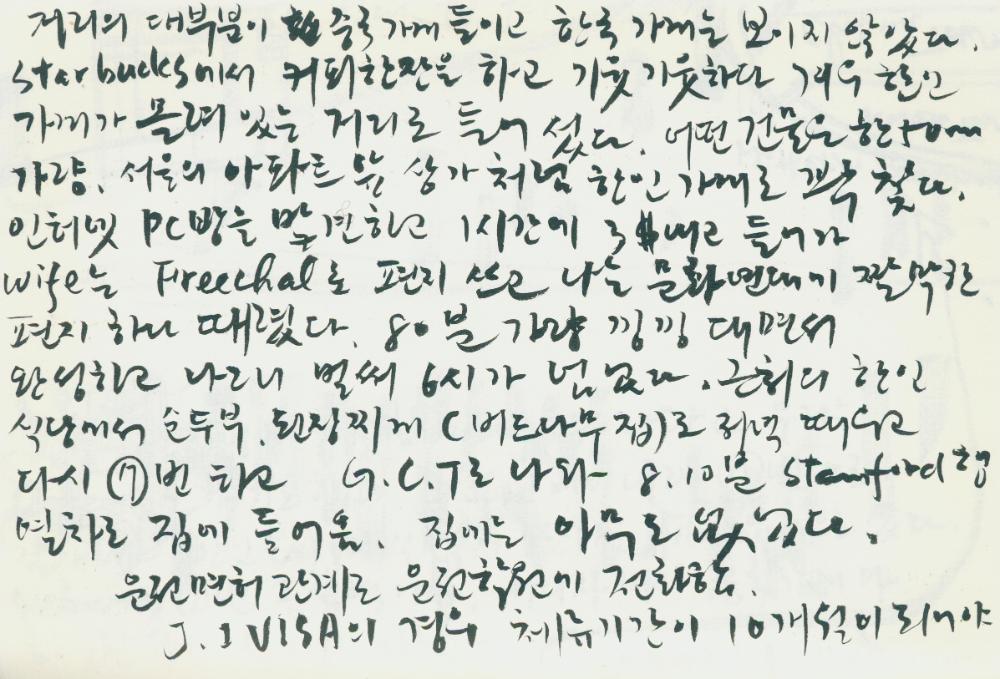 거리의 대부분이 중국가게들이고 한국가게는 보이지 않았다.
starbucks에서 커피한잔을 하고 기웃기웃하다 겨우 한인
가게가 몰려 있는 거리로 들어 섰다. 어떤 건물은 한 50m
가량, 서울의 아파트 앞 상가처럼 한인가게로 꽉 찼다.
인터넷 PC방을 발견하고 1시간에 3$내고 들어가
wife는 Freechal로 편지 쓰고 나는 문화연대에 짤막한
편지 하나 때렸다. 80분 가량 낑낑 대면서
완성하고 나그니 벌써 6시가 넘었다. 근처의 한인
식당에서 순두부, 된장찌게 (버드나무집)로 저녁 때우고
다시 ⑦번 타고 G.C.T로 나와 8.10분 Stamford행
열차로 집에 들어옴. 집에는 아무도 없었다.
운전면허 관계로 운전학원에 전화함.
J.1 VISA의 경우 체류기간이 10개월이 되어야